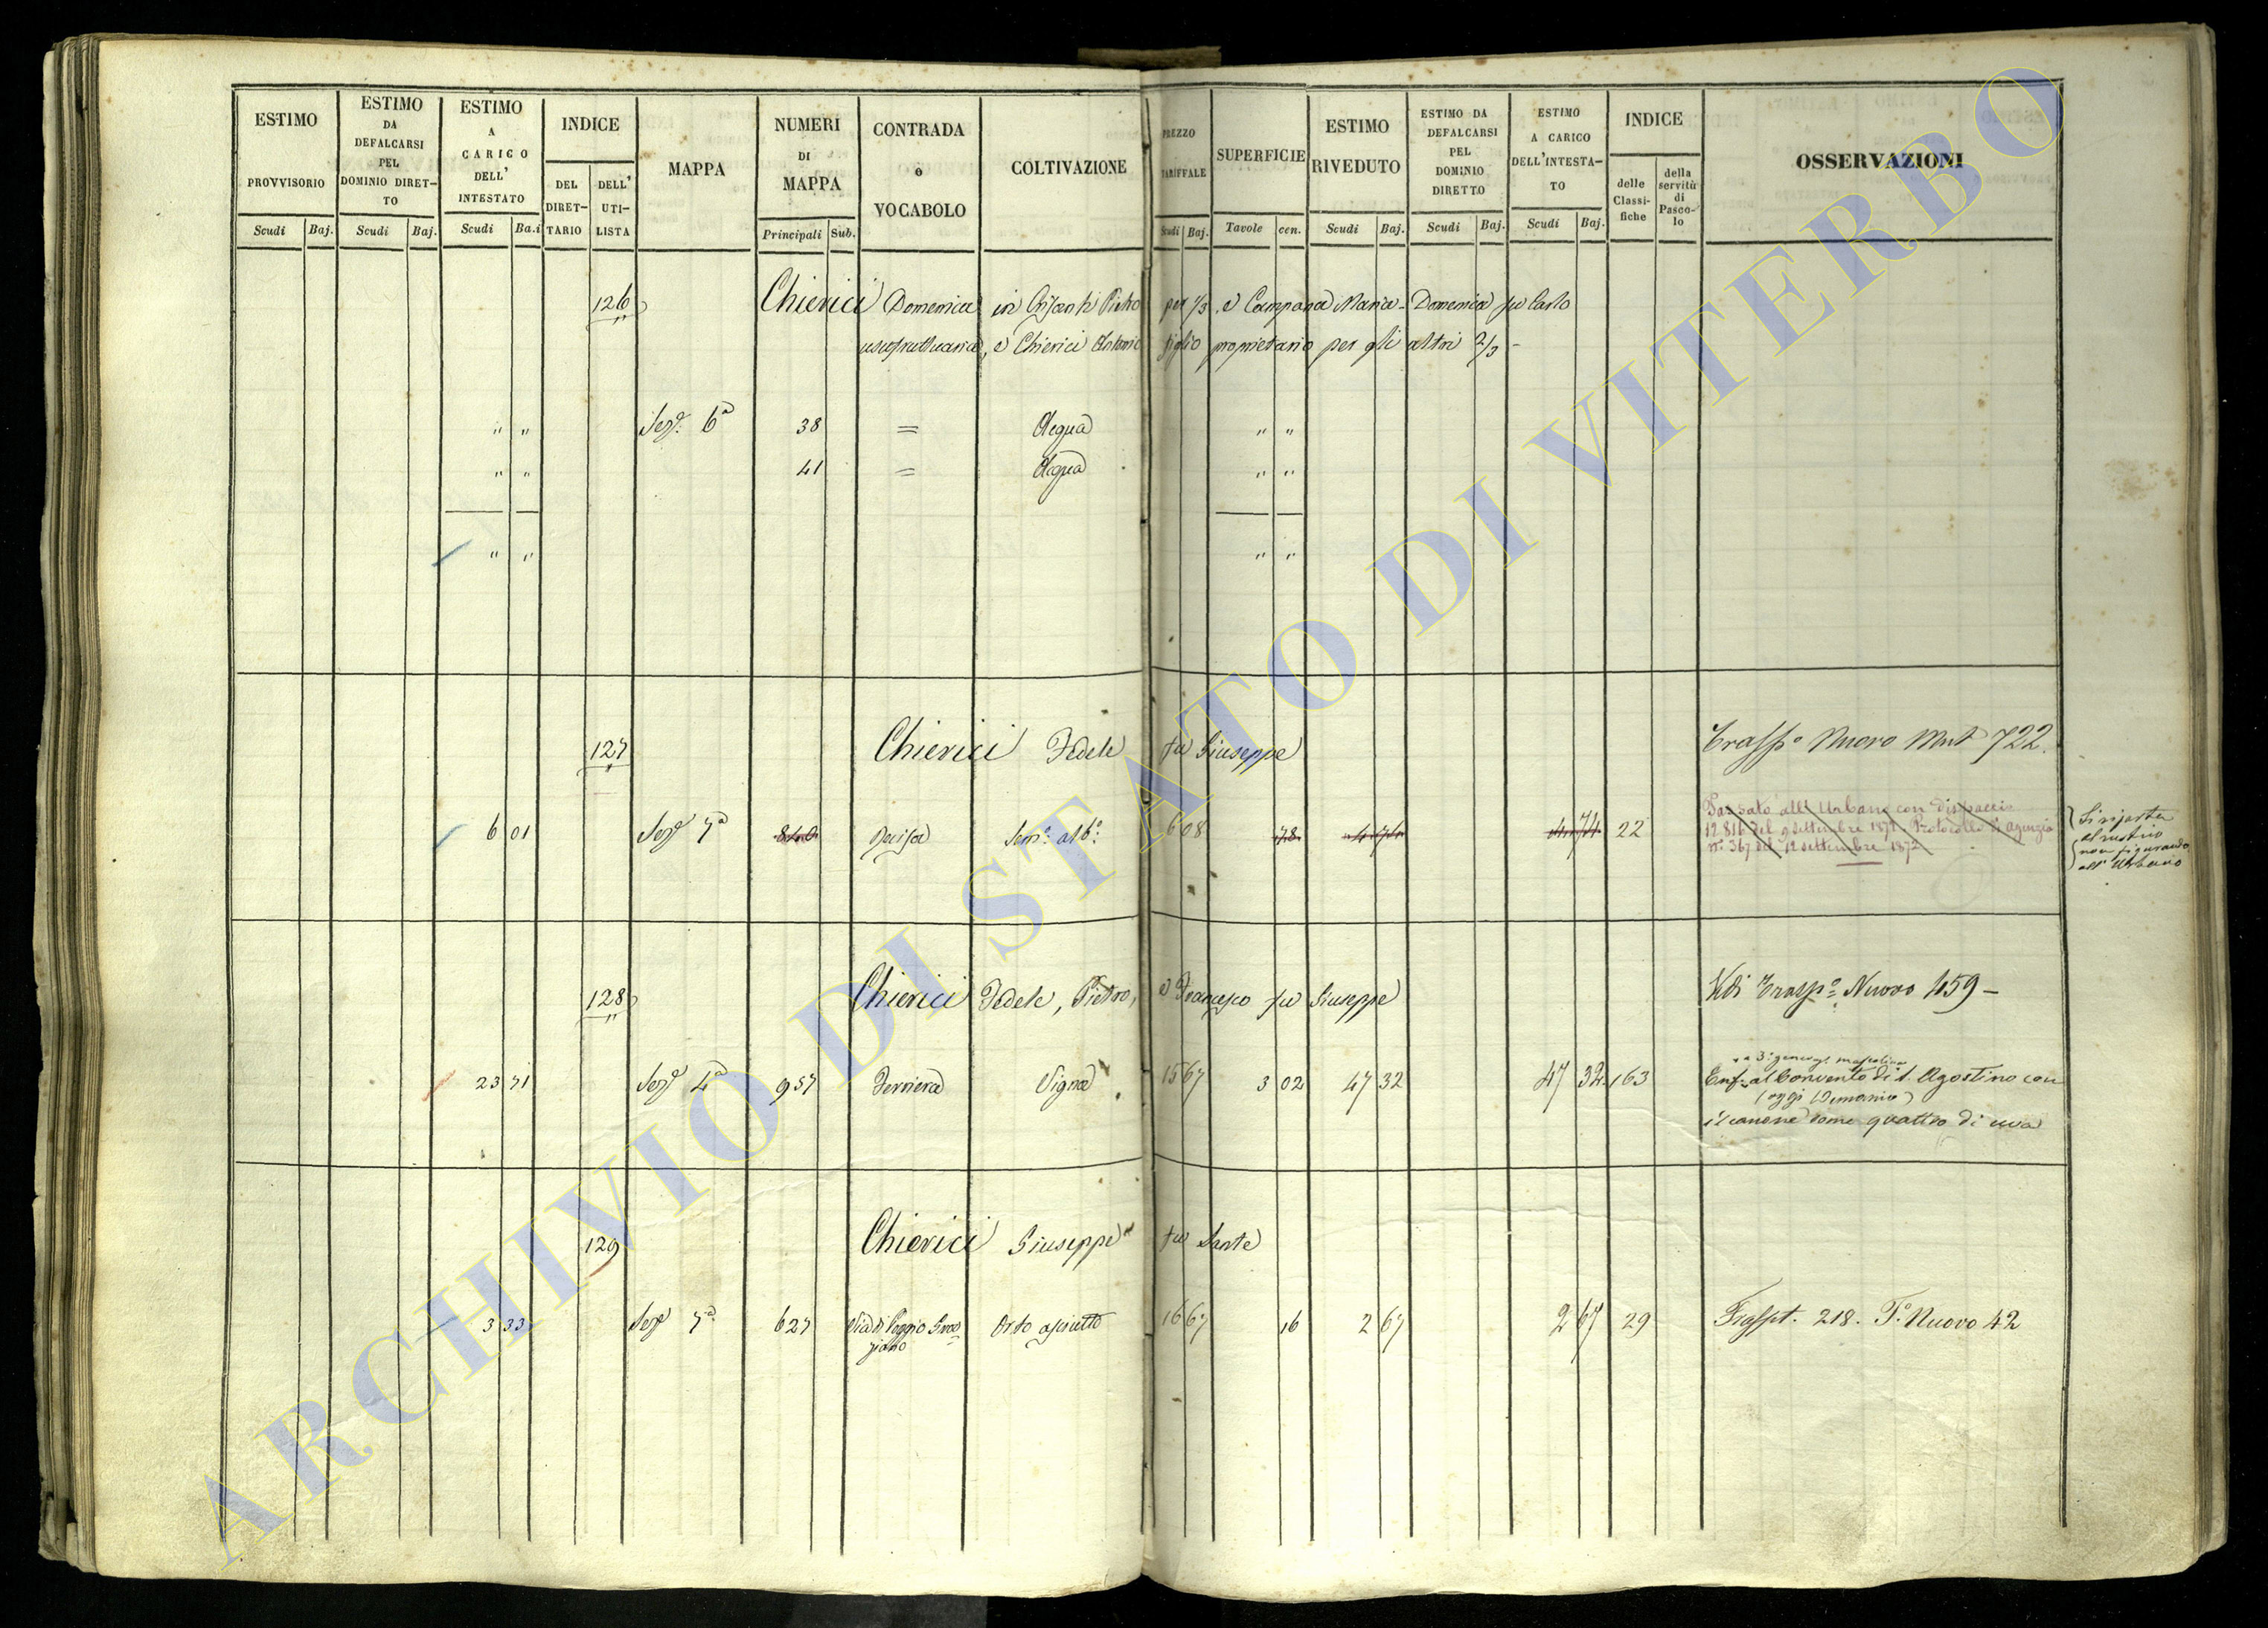 ESTIMO PROVVISORIO
Scudi Baj.
ESTIMO DA DEFALCARSI PEL DOMINIO DIRET-TO
Scudi Baj.
ESTIMO A CARICO DELL' INTESTATO
Scudi Ba.i
INDICE
DEL DIRET-TARIO
DELL' UTI-LISTA
MAPPA
NUMERI DI MAPPA
Principali Sub.
CONTRADA o VOCABOLO
COLTIVAZIONE
PREZZO TARIFFALE
Scudi Baj.
SUPERFICIE
Tavole cen.
ESTIMO RIVEDUTO
Scudi Baj.
ESTIMO DA DEFALCARSI PEL DOMINIO DIRETTO
Scudi Baj.
ESTIMO A CARICO DELL'INTESTA-TO
Scudi Baj.
INDICE
delle Classi-fiche
della servitù di Pasco-lo
OSSERVAZIONI
126 Chierici Domenica in Pietro per 1/3 e Campana Maria-Domenica fu Carlo
usufruttuaria, e Chierici Antonio figlio proprietario per gli altri 2/3 -
" " Sez.e 6a 38 = Acqua " "
" " 41 = Acqua " "
" " " "
127 Chierici Fedele fu Giuseppe Trasp.o Nuovo Mut 722.
6 01 Sez.e 7a 840 Sem.o alb.o 6 08 78 4 74 4 74 22
Passato all' Urbano con dispaccio
12816 del 9 settembre 1872 Protocollo d'agenzia
n.o 367 del 12 settembre 1872
Si riporta
al rustico
non figurando
all' Urbano
128 Chierici Fedele, Pietro, e Francesco fu Giuseppe Vedi Trasp.o Nuovo 459 -
a 3.a generaz. mascolina
23 71 Sez.e 4a 957 Ferriera Vigna 15 67 3 02 47 32 47 32 163 Enf. al Convento di S. Agostino con
(oggi Demanio)
il canone some quattro di uva
129 Chierici Giuseppe fu Sante
3 33 Sez.e 7a 627 Via di Poggio Orto asciutto 16 67 16 2 67 2 67 29 Traspt. 218. T.o Nuovo 42
ARCHIVIO DI STATO DI VITERBO